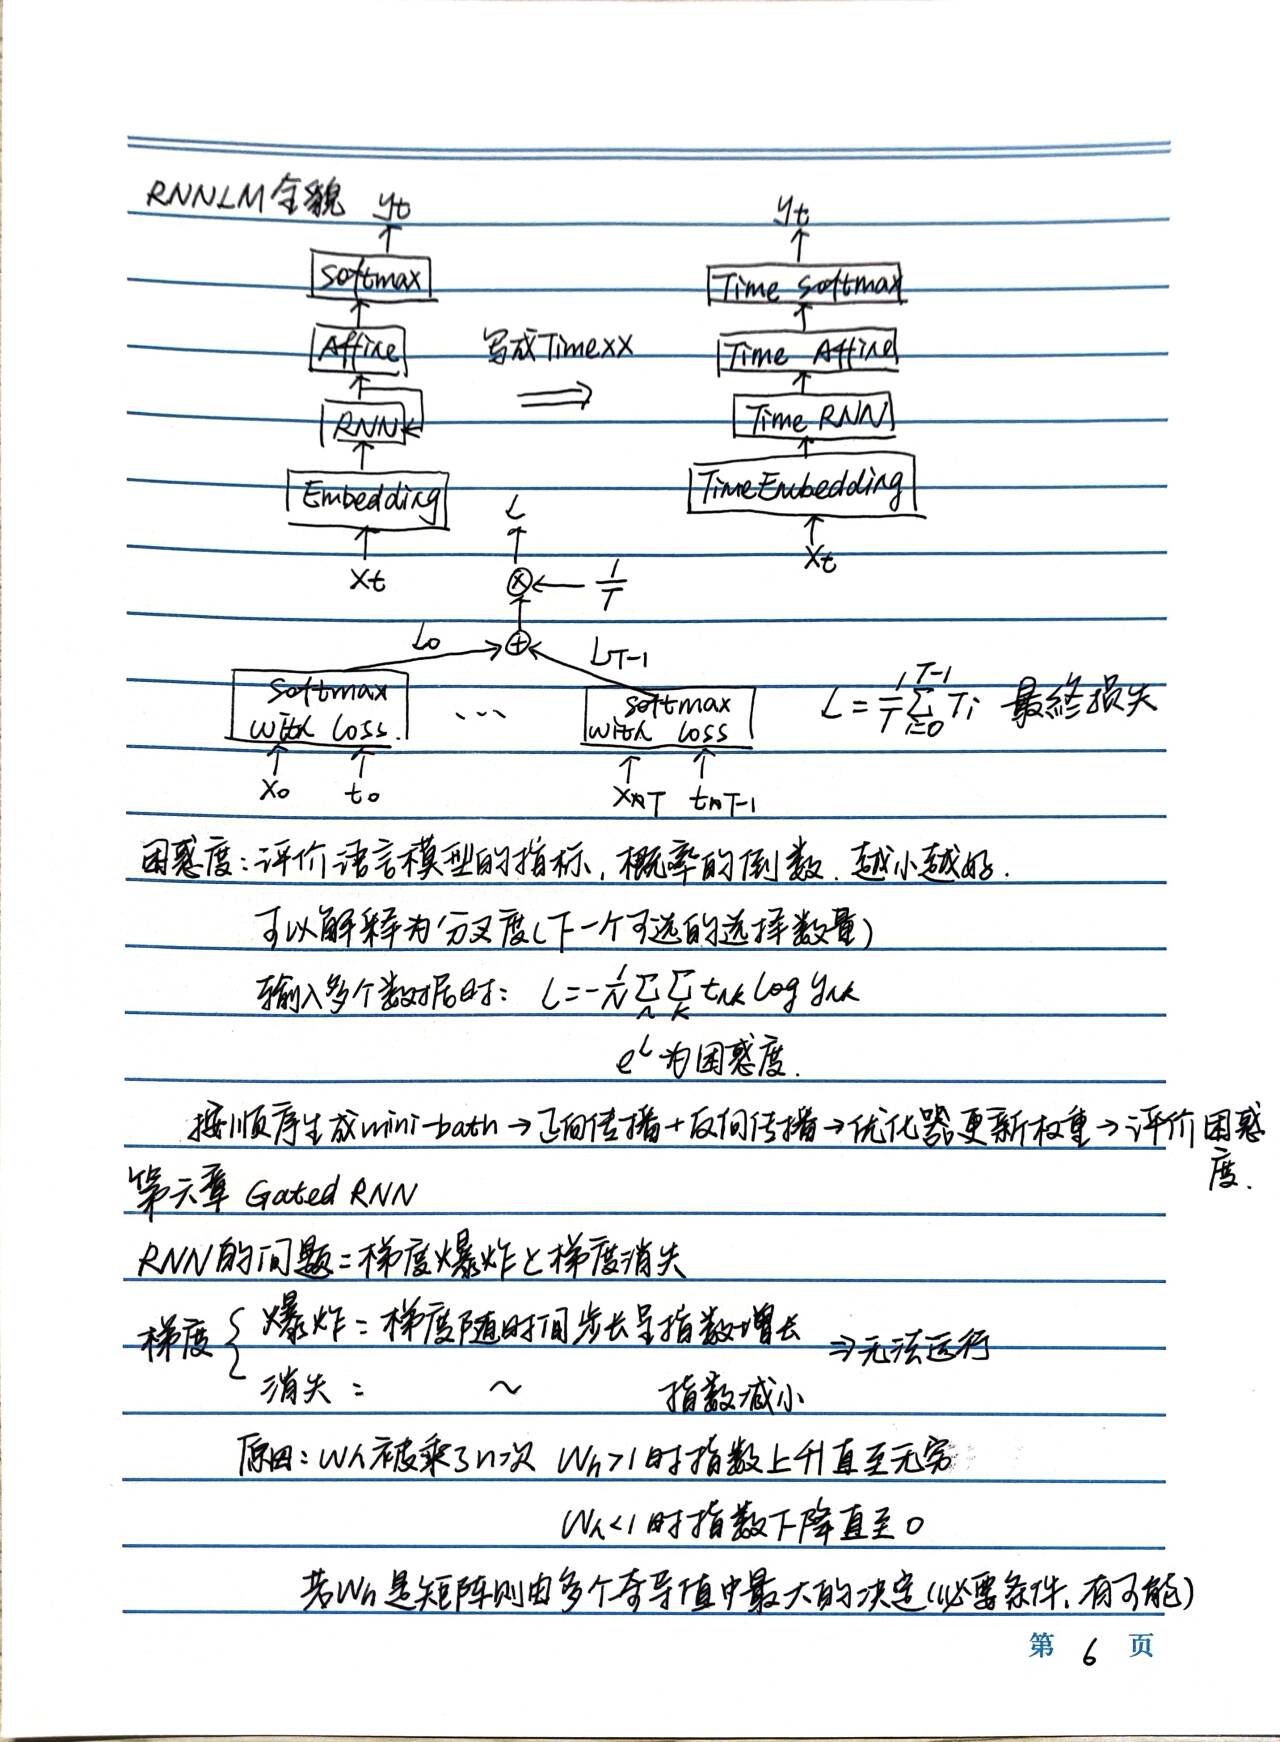 RNNLM全貌 yt yt
Softmax Time Softmax
Affine 写成Timexx Time Affine
RNN Time RNN
Embedding TimeEmbedding
xt xt
L
1/T
L0 LT-1
Softmax with loss … softmax with loss L=1/T∑i=0T-1 Ti 最终损失
x0 t0 tnT-1
困惑度:评价语言模型的指标,概率的倒数.越小越好.
可以解释为分叉度(下一个可选的选择数量)
输入多个数据时: L=-1/N∑n∑k tnk log ynk
eL为困惑度.
按顺序生成mini-bath→正向传播+反向传播→优化器更新权重→评价困惑
度.
第六章 Gated RNN
RNN的问题=梯度爆炸と梯度消失
梯度{爆炸=梯度随时间步长呈指数增长 ⇒无法运行
消失: ~ 指数减小
原因:Wh被乘了n次 Wh>1时指数上升直至无穷
Wh<1时指数下降直至0
若Wh是矩阵则由多个奇异值中最大的决定(必要条件,有可能)
第 6 页